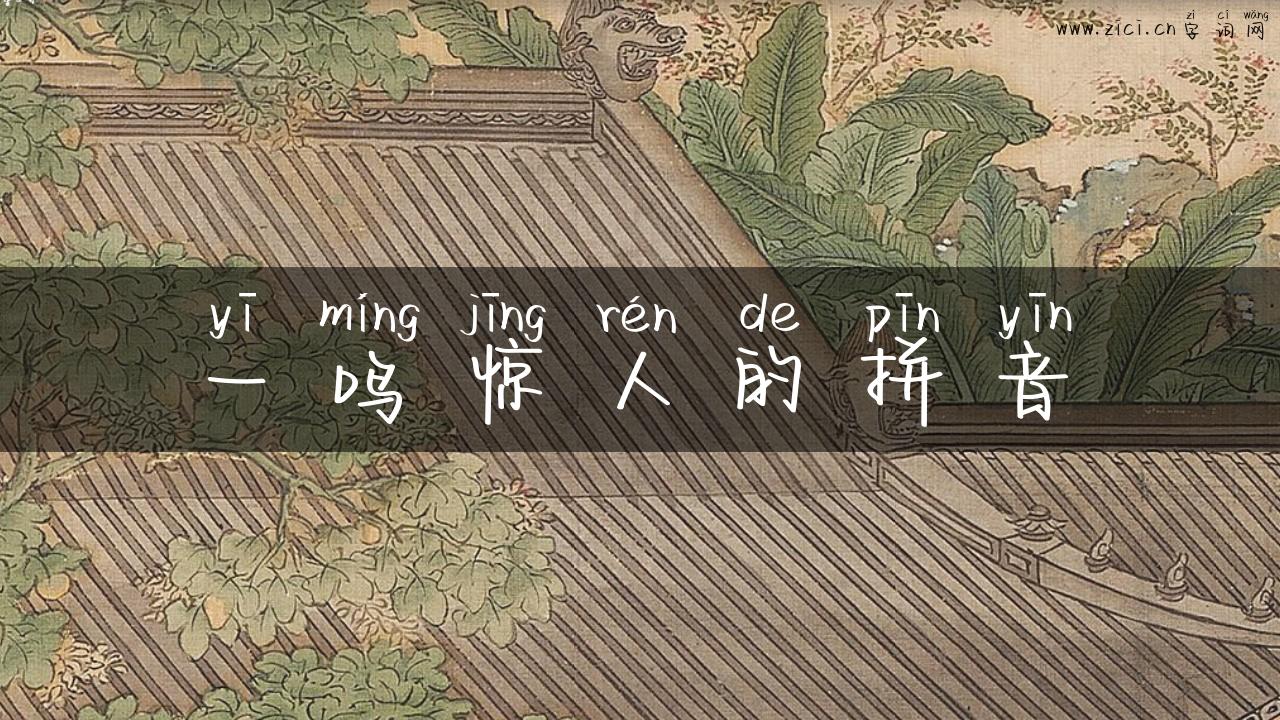 zì cí wǎng
www.zici.cn 字词网
yī míng jīng rén de pīn yīn
一鸣惊人的拼音